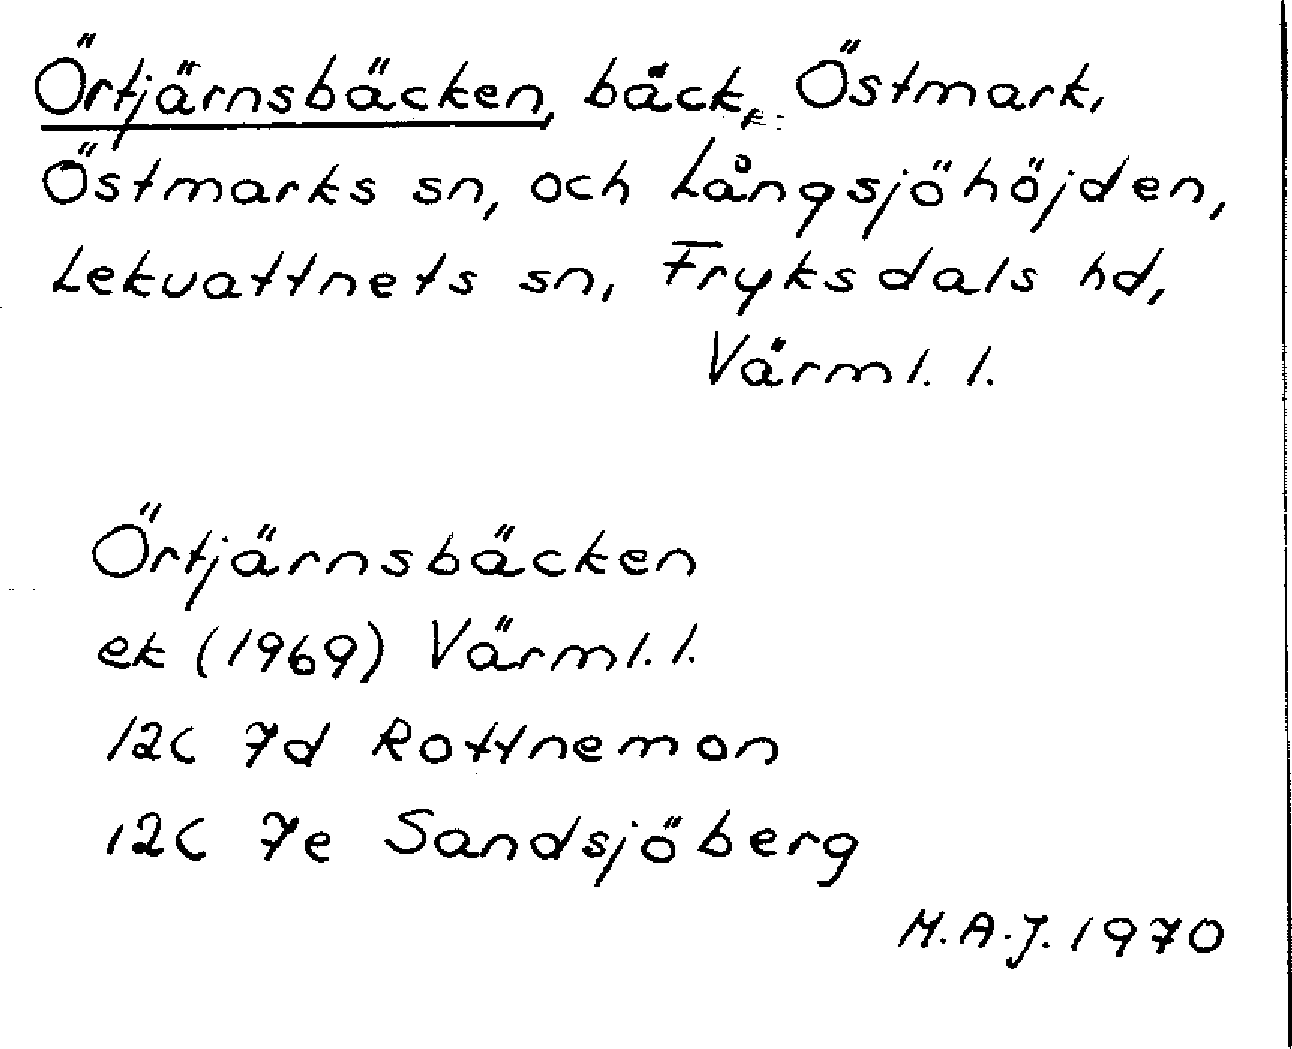 Örtjärnsbäcken, bäck, Östmark,
Östmarks sn, och Långsjöhöjden,
Lekvattnets sn, Fryksdals hd,
Värml. l.
Örtjärnsbäcken
ek (1969) Värml. l.
12C 7d Rottnemon
12C 7e Sandsjöberg
M.A.J. 1970